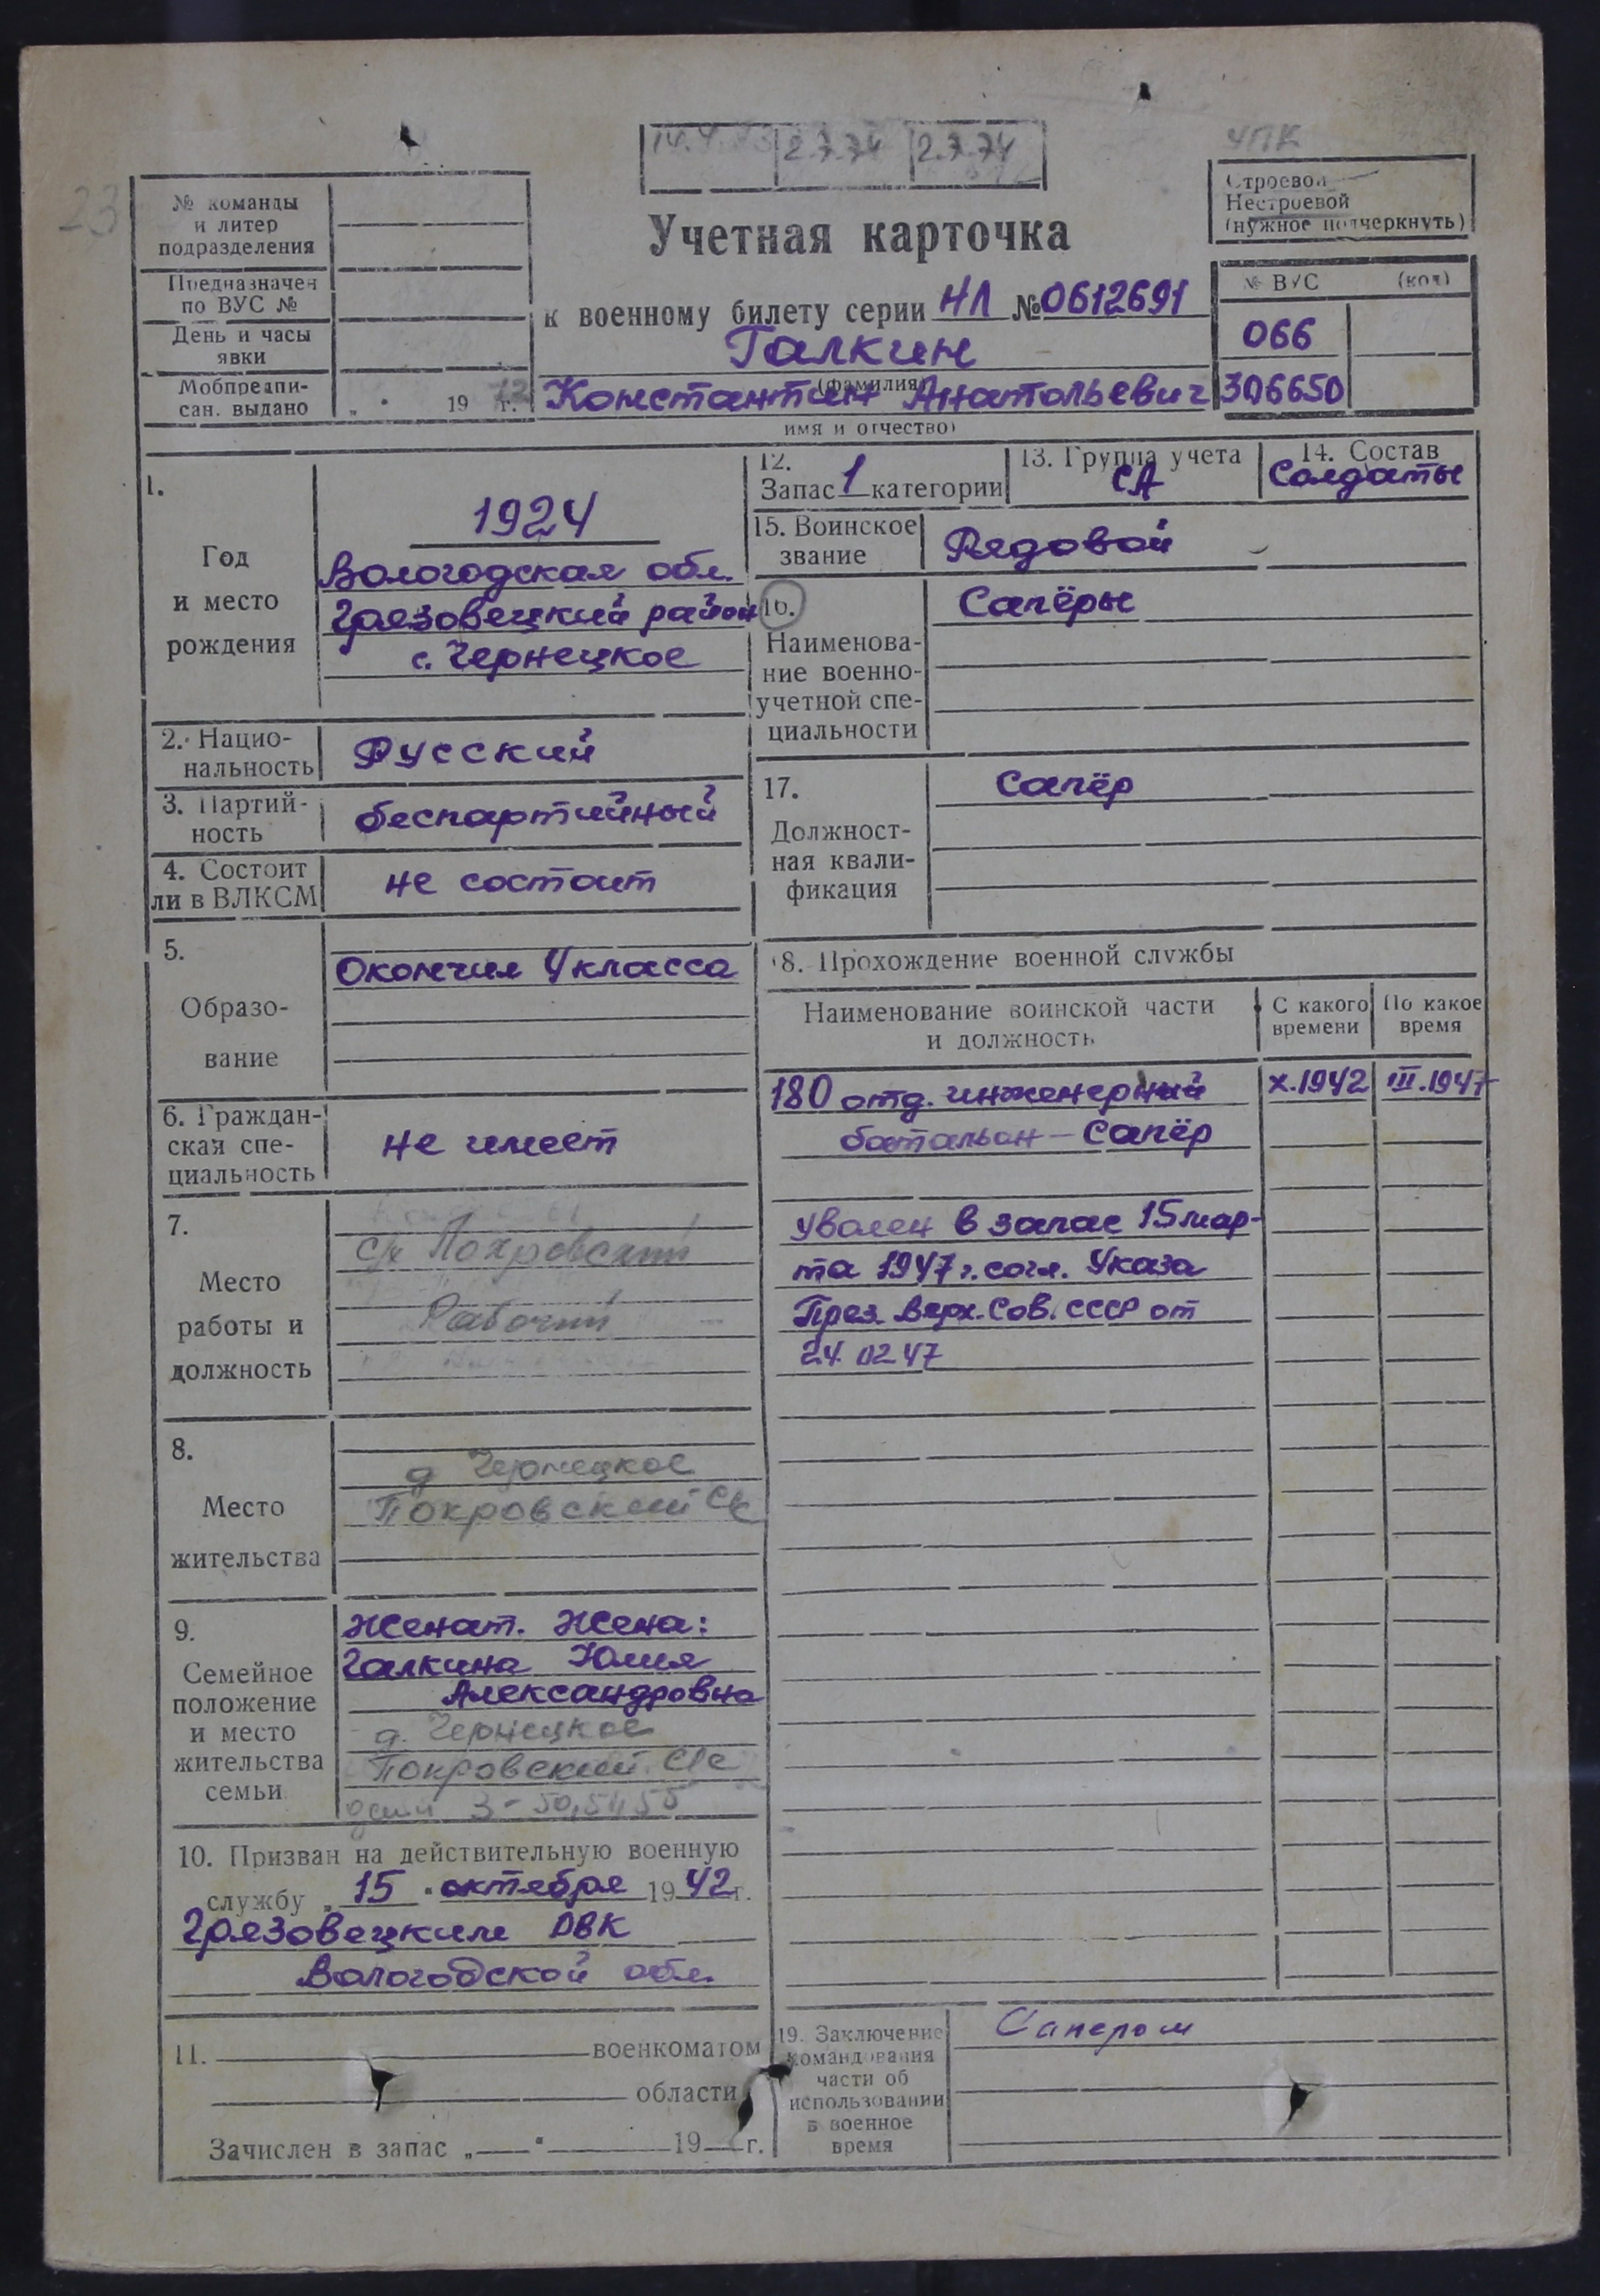 2.7.74 2.7.74
УПК
23
№ команды
и литер
подразделения
Предназначен
по ВУС №
День и часы
явки
Мобпредпи-
сан. выдано „ " 19 73 г.
Учетная карточка
к военному билету серии НЛ № 0612691
Галкин
(фамилия)
Константин Анатольевич
имя и отчество)
Строевой
Нестроевой
(нужное подчеркнуть)
№ ВУС (код)
066
306650
1.
Год
и место
рождения
1924
Вологодская обл.
Грязовецкий район
с. Чернецкое
2. Нацио-
нальность
Русский
3. Партий-
ность
беспартийный
4. Состоит
ли в ВЛКСМ
не состоит
5.
Образо-
вание
Окончил 4 класса
6. Граждан-
ская спе-
циальность
не имеет
7.
Место
работы и
должность
с/х Покровский
Рабочий
8.
Место
жительства
д Чернецкое
Покровский с/с
9.
Семейное
положение
и место
жительства
семьи
Женат. Жена:
Галкина Юлия
Александровна
д. Чернецкое
Покровский с/с
детей 3 - 50, 54 55
10. Призван на действительную военную
службу „ 15 " октября 19 42 г.
Грязовецким РВК
Вологодской обл.
11. военкоматом
области
Зачислен в запас „ " 19 г.
12.
Запас 1 категории
13. Группа учета
СА
14. Состав
Солдаты
15. Воинское
звание
Рядовой
16.
Наименова-
ние военно-
учетной спе-
циальности
Сапёры
17.
Должност-
ная квали-
фикация
Сапёр
18. Прохождение военной службы
Наименование воинской части
и должность
С какого
времени
По какое
время
180 отд. инженерный X.1942 III.1947
батальон - Сапёр
Уволен в запас 15 мар-
та 1947 г. согл. Указа
През. Верх. Сов. СССР от
24.02 47
19. Заключение
командования
части об
использовании
в военное
время
Сапером